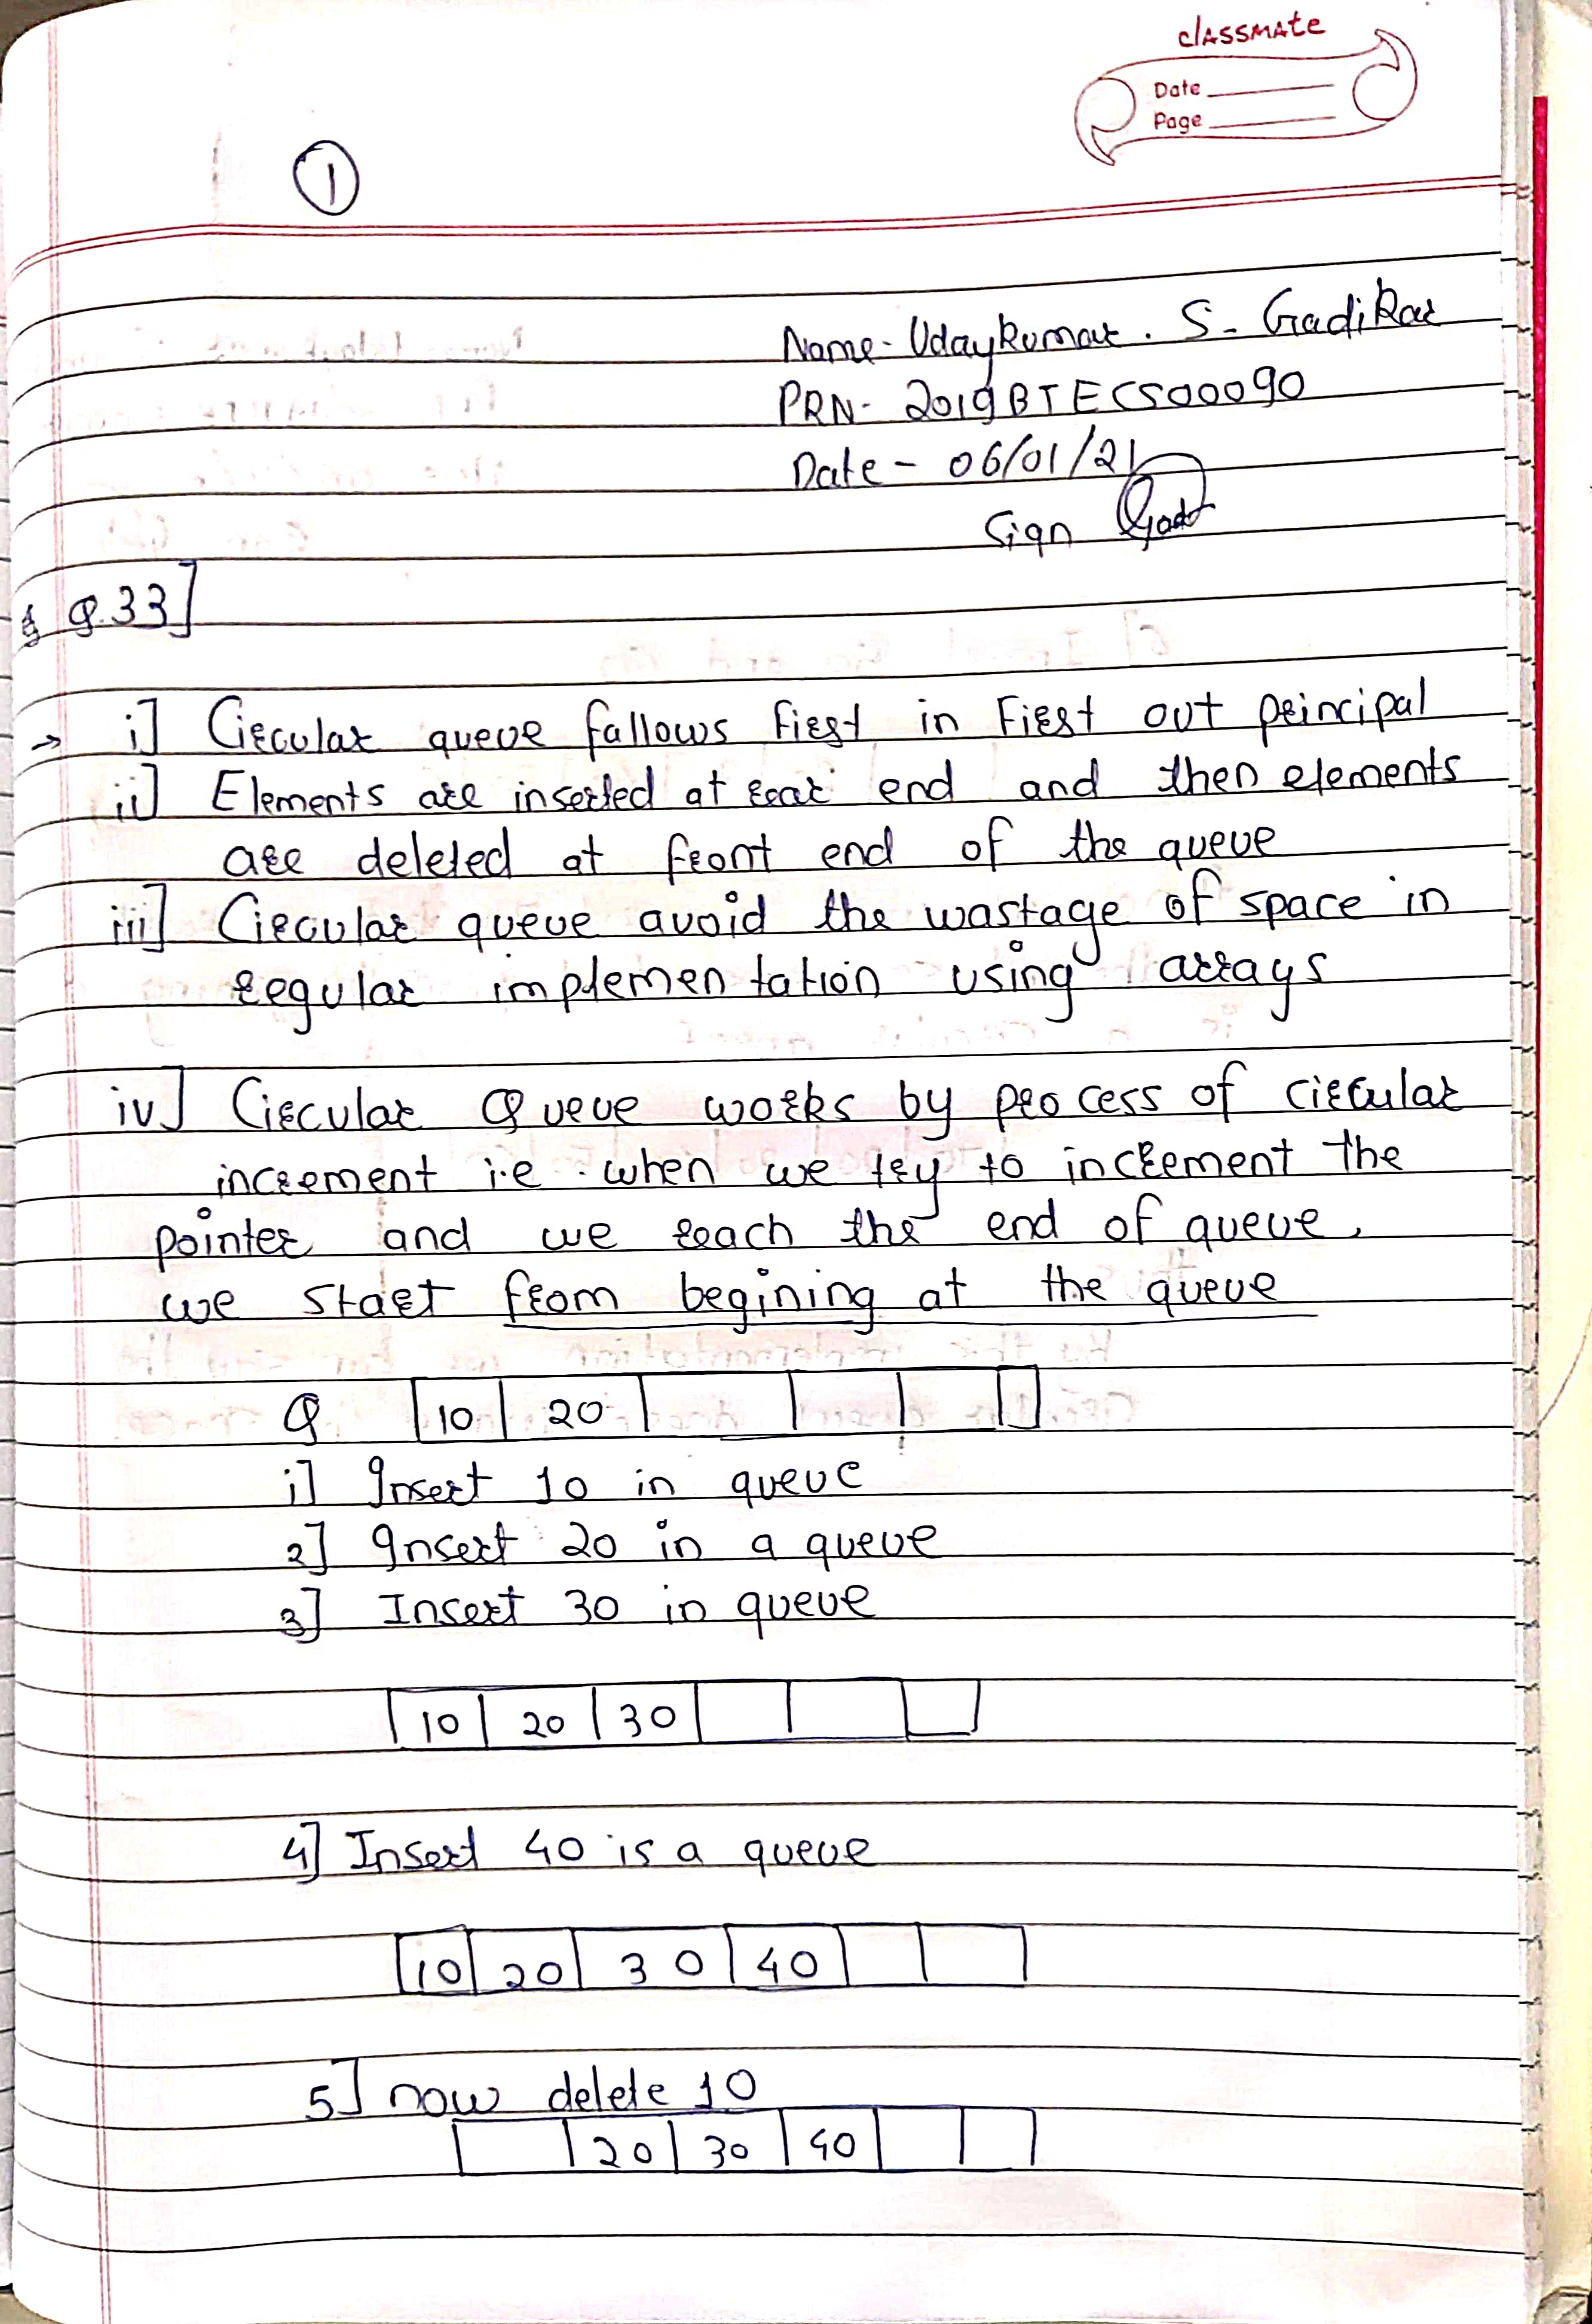 classmate
Date
Page
1
Name- Udaykumar . S. Gadikar
PRN- 2019BTECS00090
Date - 06/01/21
Sign
Q.33]
→ i] Circular queue fallows First in First out principal
ii] Elements are inserted at rear end and then elements
are deleted at front end of the queue
iii] Circular queue avoid the wastage of space in
regular implementation using arrays
iv] Circular Queue works by process of circular
increment i.e when we try to increment the
pointer and we reach the end of queue,
we start from begining at the queue
Q 10 20
i] Insert 10 in queue
2] Insert 20 in a queue
3] Insert 30 in queue
10 20 30
4] Insert 40 is a queue
10 20 30 40
5] now delete 10
20 30 40